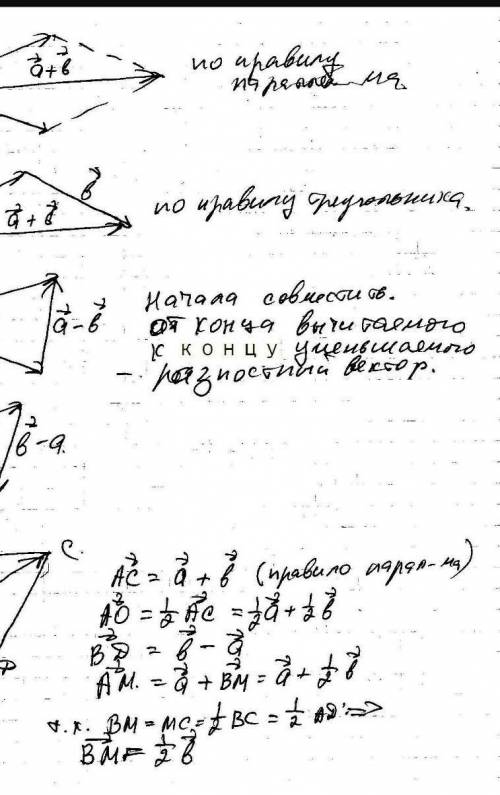 a⃗+b⃗
по правилу
b⃗
a⃗ + b⃗
по правилу треугольника.
a⃗ – b⃗
Начала совместить.
от конца вычитаемого
к концу уменьшаемого
– разностный вектор.
b⃗ – a.
C.
AC⃗ = a⃗ + b⃗ (правило парал-ма)
AO⃗ = ½ AC⃗ = ½ a⃗ + ½ b⃗
BD⃗ = b⃗ – a⃗
D
AM⃗. = a⃗ + BM⃗ = a⃗ + ½ b⃗
т.к. BM = MC = ½ BC = ½ AD ⇒
BM⃗ = ½ b⃗